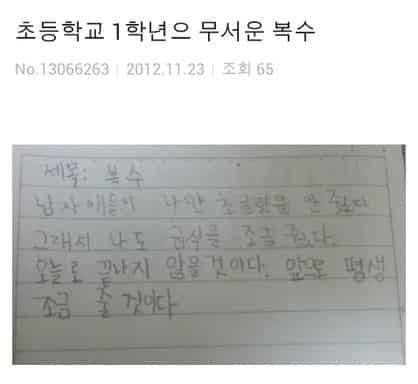 초등학교 1학년으 무서운 복수
No.13066263 | 2012.11.23 | 조회 65
세목: 복수
남자애들이 나만 초콜릿을 안 줬다
그래서 나도 급식을 조금 줬다.
오늘로 끝나지 않을것이다. 앞으로 평생
조금 줄 것이다